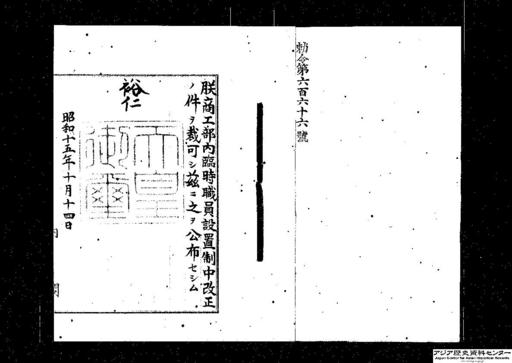 勅令第六百六十六號
朕商工部內臨時職員設置制中改正
ノ件ヲ裁可シ茲ニ之ヲ公布セシム
裕仁
天皇御璽
昭和十五年十月十四日
內
閣
アジア歴史資料センター
Japan Center for Asian Historical Records